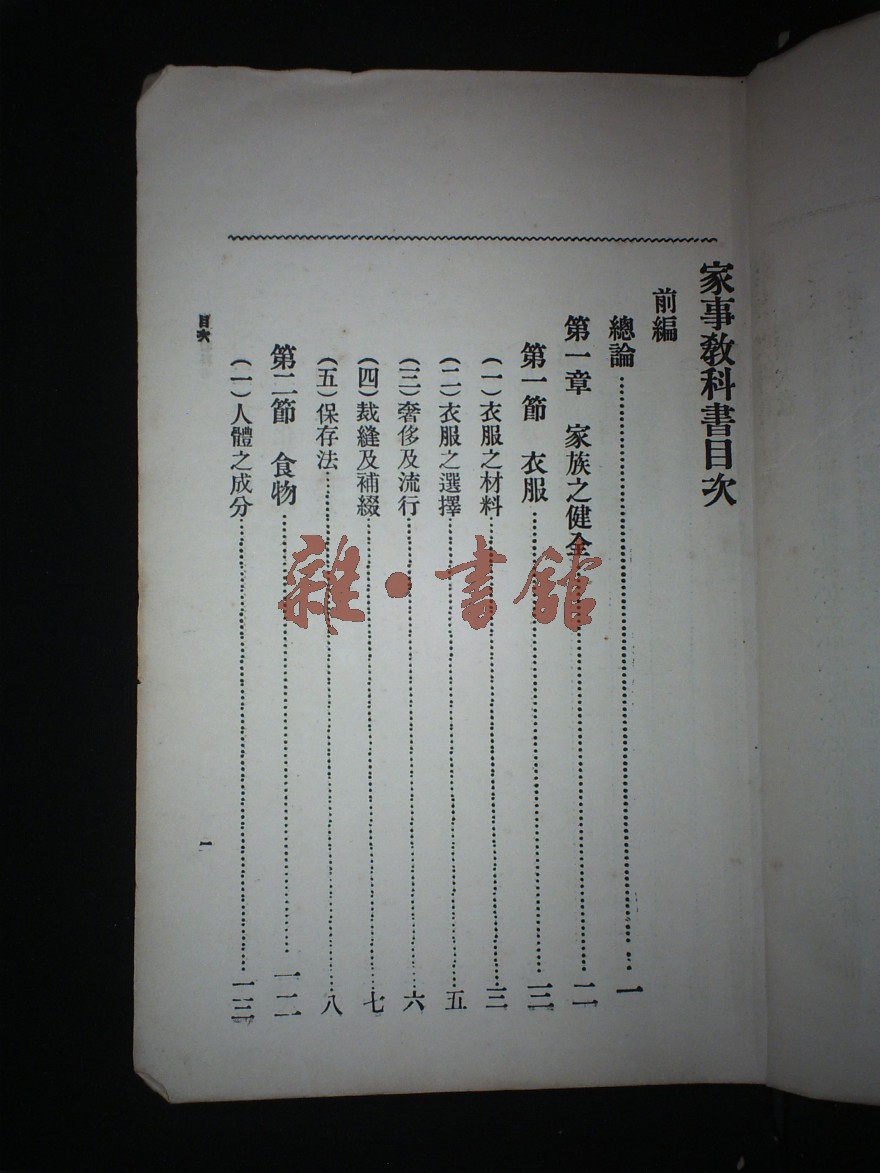 家事教科書目次
前編
總論……一
第一章　家族之健全……二
第一節　衣服……三
(一)衣服之材料……三
(二)衣服之選擇……五
(三)奢侈及流行……六
(四)裁縫及補綴……七
(五)保存法……八
第二節　食物……一二
(一)人體之成分……一三
目次
一
雜·書館